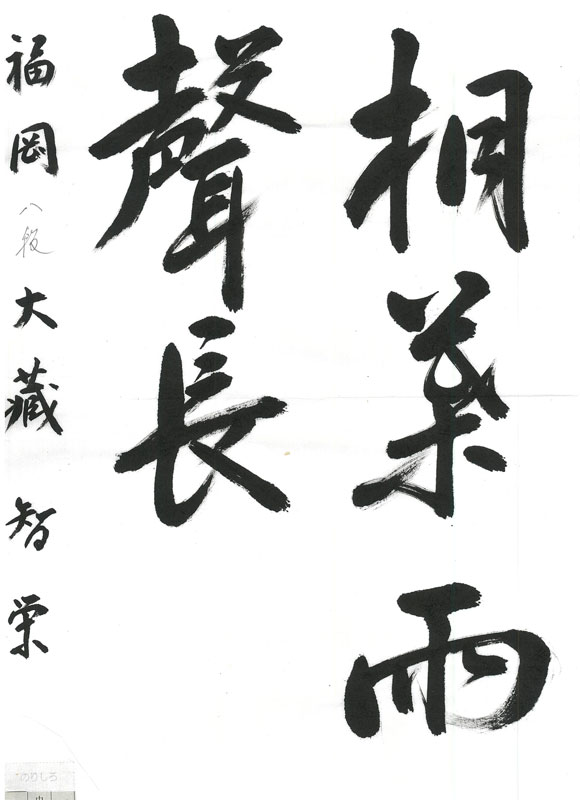 桐葉雨
聲長
福岡 八段 大藏 智栄
のりしろ